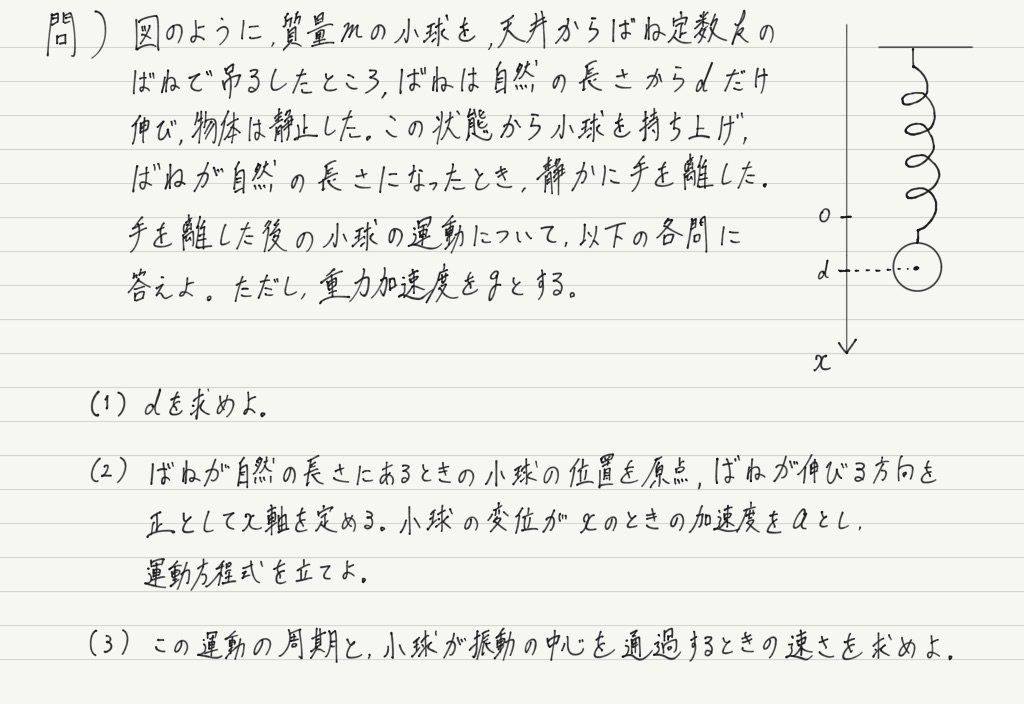 問) 図のように,質量mの小球を,天井からばね定数kの
ばねで吊るしたところ,ばねは自然の長さからdだけ
伸び,物体は静止した。この状態から小球を持ち上げ,
ばねが自然の長さになったとき,静かに手を離した。
手を離した後の小球の運動について,以下の各問に
答えよ。ただし,重力加速度をgとする。
0
d
x
(1) dを求めよ。
(2) ばねが自然の長さにあるときの小球の位置を原点,ばねが伸びる方向を
正としてx軸を定める。小球の変位がxのときの加速度をaとし,
運動方程式を立てよ。
(3) この運動の周期と,小球が振動の中心を通過するときの速さを求めよ。